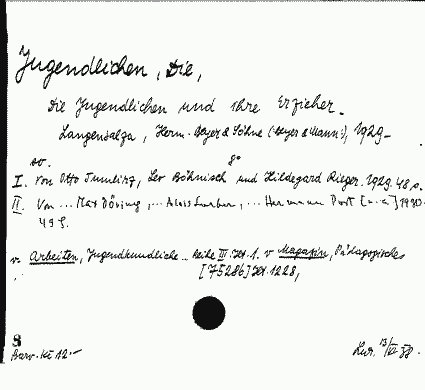 Jugendlichen, Die,
Die Jugendlichen und ihre Erzieher.
Langensalza, Herm. Beyer & Söhne (Beyer & Mann), 1929-
8°
I. Von Otto Tumlirz, Leo Böhnisch und Hildegard Rieger. 1929. 48 S.
II. Von ... Max Döring, ... Alois ... Hermann ... [u. a.] 1930.
49 S.
v. Arbeiten, Jugendkundliche. Reihe III. Ht. 1. v Magazin, Pädagogisches
[75286] Ht. 1228,
8